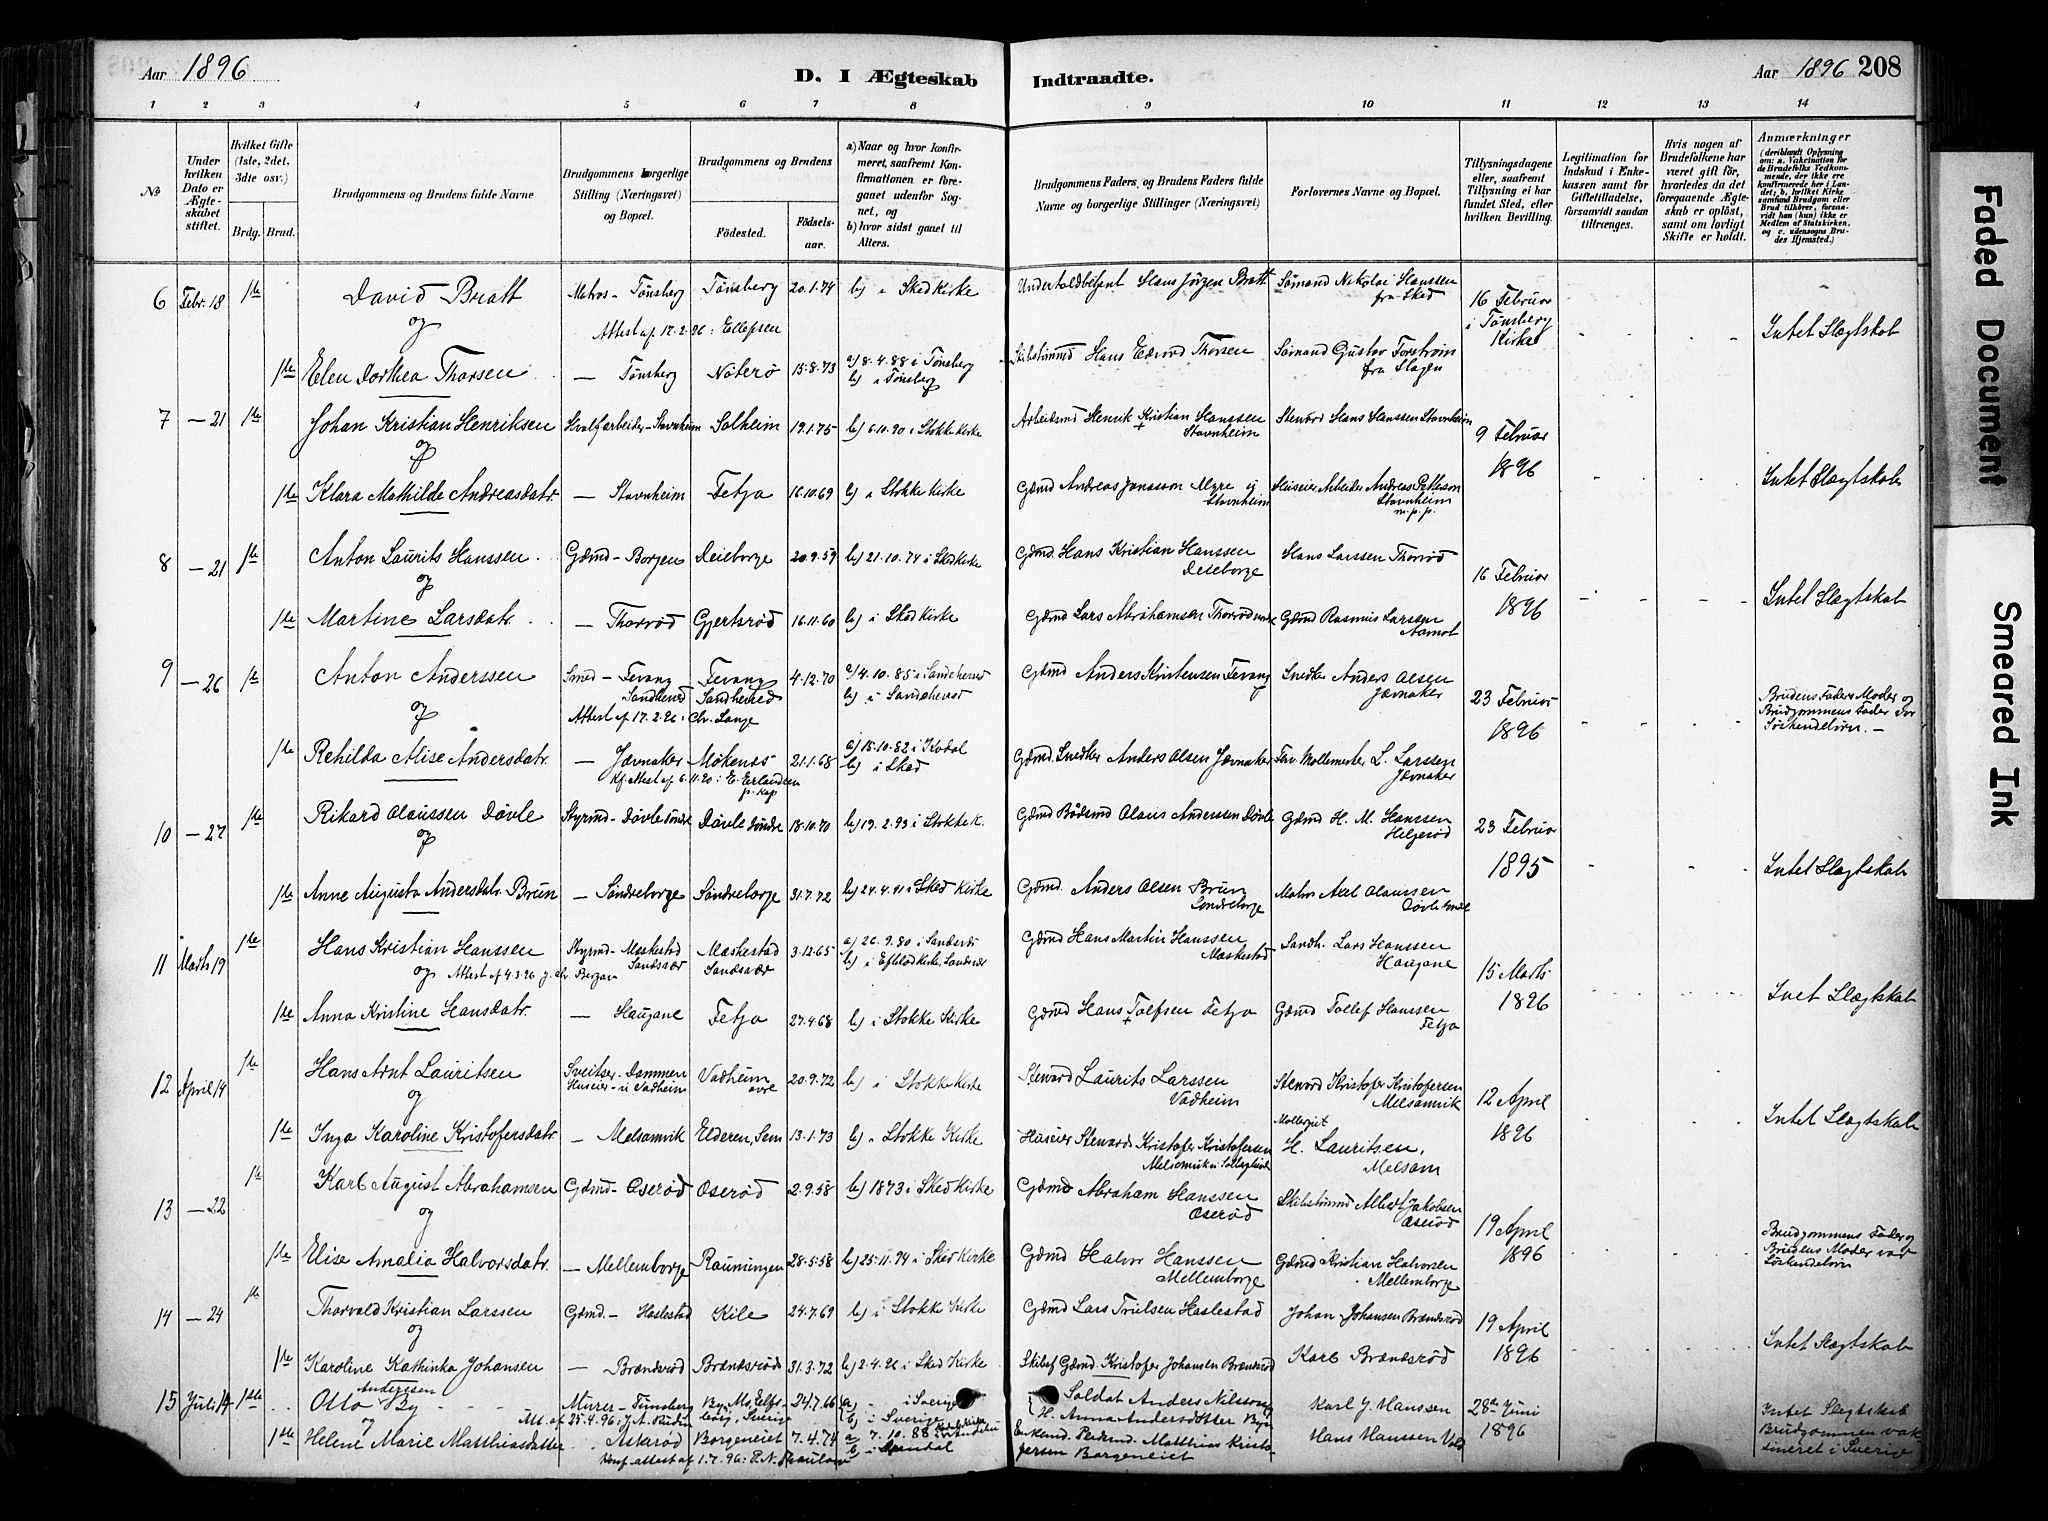 Aar 1896
D. I Ægteskab Indtraadte.
Aar 1896 208
1 2 3 4 5 6 7 8 9 10 11 12 13 14
No
Under hvilken Dato er Ægteskabet stiftet.
Hvilket Gifte (1ste, 2det, 3die osv.)
Brdg. Brud.
Brudgommens og Brudens fulde Navne
Brudgommens borgerlige Stilling (Næringsvei) og Bopæl.
Brudgommens og Brudens
Fødested.
Fødselsaar.
a) Naar og hvor konfirmeret, saafremt Konfirmationen er foregaaet udenfor Sognet, og
b) hvor sidst gaaet til Alters.
Brudgommens Faders og Brudens Faders fulde Navne og borgerlige Stillinger (Næringsvei)
Forlovernes Navne og Bopæl.
Tillysningsdagene eller, saafremt Tillysning ei har fundet Sted, efter hvilken Bevilling.
Legitimation for Indskud i Enkekassen samt for Giftetilladelse, forsaavidt saadan tiltrænges.
Hvis nogen af Brudefolkene har været gift før, hvorledes da det foregaaende Ægteskab er opløst, samt om lovligt Skifte er holdt.
Anmærkninger (deriblandt Oplysning om: a. Vakcination for de Brudefolks Vedkommende, der ikke ere konfirmerede her i Landet; b. hvilket Kirkesamfund Brudgom eller Brud tilhører, forsaavidt han (hun) ikke er Medlem af Statskirken, og c. udensogns Brudes Hjemsted.)
6 Febr. 18 1ste David Bratt Matros - Tønsberg Tønsberg 20.1.74 b) i Skee Kirke Hans Jörgen Bratt Sømand Nikolai Hanssen fra Skee 16 Februar i Tønsberg Kirke Intet Slægtskab
og Attest af 17.2.96: Ellefsen
1ste Elen Dorthea Thorsen — Tønsberg Nøterø 15.8.73 a) 8.4.88 i Tønsberg b) i Tønsberg Hans Edvard Thorsen Sømand Gustav Forstrøm fra Slagen
7 — 21 1ste Johan Kristian Henriksen Hvalfarbeider - Stavnheim Solheim 19.1.75 b) 6.10.90 i Stokke Kirke Arbeidsmd Henrik Kristian Hanssen Stavnheim Steward Hans Hanssen Stavnheim 9 Februar 1896 Intet Slægtskab
og
1ste Klara Mathilde Andreasdatr. — Stavnheim Fetja 16.10.69 b) i Stokke Kirke Gdmd Andreas Jonassen Myre i Stavnheim Huseier Arbeider Andreas Pettersen Stavnheim m.p.p.
8 — 21 1ste Anton Laurits Hanssen Gdmd - Borgen Deieborge 20.9.59 b) 21.10.74 i Skee Kirke Gdmd. Hans Kristian Hanssen Deieborge Hans Larssen Thorrød 16 Februar 1896 Intet Slægtskab
og
1ste Martine Larsdatr. — Thorrød Gjertsrød 16.11.60 b) i Skee Kirke Gdmd Lars Abrahamsen Thorrød Gdmd Rasmus Larssen Aamot
9 — 26 1ste Anton Anderssen Smed - Fevang Sandeherred Fevang Sandeherred 4.12.70 a) 4.10.85 i Sandeherred b) i Sandeherred Gdmd Anders Kristensen Fevang Snedker Anders Olsen Jævnaker 23 Februar 1896 Brudens Faders Moder og Brudgommens Fader var Søskendebørn. —
og Attest af 17.2.96: Chr. Lange
1ste Rehilda Alise Andersdatr. — Jævnaker Møkenes 21.1.68 a) 15.10.82 i Kodal b) i Skee Gdmd Snedker Anders Olsen Jævnaker L. Larssen Jævnaker
Kf. Attest af 6.11.90: E. Erlandsen p. kap
10 — 27 1ste Rikard Olaussen Døvle Styrmd - Døvle søndre Døvle søndre 18.10.70 b) 19.2.93 i Stokke K. Gdmd Bødsmd Olaus Anderssen Døvle Gdmd H. M. Hanssen Helgerød 23 Februar 1895 Intet Slægtskab
og
1ste Anne Augusta Andersdatr. Brun — Søndreborge Søndreborge 31.7.72 b) 24.4.91 i Skee Kirke Gdmd. Anders Olsen Brun Søndreborge Matros Axel Olaussen Døvle søndre
11 Marts 19 1ste Hans Kristian Hanssen Styrmd - Mæskestad Sandsvær Mæskestad Sandsvær 3.12.65 a) 26.9.80 i Sandsvær b) i Efteløt Kirke, Sandsvær Gdmd Hans Martin Hanssen Mæskestad Sandh. Lars Hanssen Haugane 15 Marts 1896 Intet Slægtskab
og Attest af 4.3.96 Bergan
1ste Anna Kristine Hansdatr. — Haugane Fetja 27.4.68 b) i Stokke Kirke Gdmd Hans Tolfsen Fetja Gdmd Tollef Hanssen Fetja
12 April 14 1ste Hans Arnt Lauritsen Sveitser - Dammen Huseier - i Vadheim Vadheim øvre 20.9.72 b) i Stokke Kirke Steward Laurits Larssen Vadheim Steward Kristofer Kristofersen Melsomvik 12 April 1896 Intet Slægtskab
og
1ste Inga Karoline Kristofersdatr. — Melsomvik Elderen, Sem 13.1.73 b) i Stokke Kirke Huseier Steward Kristofer Kristofersen H. Lauritsen, Melsom
13 — 22 1ste Karl August Abrahamsen Gdmd - Oserød Oserød 2.9.58 b) 1873 i Skee Kirke Gdmd Abraham Hanssen Oserød Skibstømmd Albert Jakobsen Oserød 19 April 1896 Brudgommens Fader og Brudens Moder var Søskendebørn
og
1ste Elise Amalia Halvorsdatr. — Mellemborge Rauningen 28.5.58 b) 25.11.94 i Skee Kirke Gdmd Halvor Hanssen Mellemborge Gdmd Kristian Halvorsen Mellemborge
14 — 24 1ste Thorvald Kristian Larssen Gdmd. - Haslestad Kile 24.7.69 b) i Stokke Kirke Gdmd Lars Trulsen Haslestad Johan Johansen Brændsrød 19 April 1896 Intet Slægtskab
og
1ste Karoline Kathinka Johansen — Brændsrød Brændsrød 31.3.72 b) 2.4.96 i Skee Kirke Gdmd. Kristofer Johansen Brændsrød Karl Brændsrød
15 Juli 14 1ste Otto Anderssen By Murer - Tønsberg By, Mo, Elfsborg, Sverige 24.7.66 a) - i Sverige b) i Sverige Soldat Anders Nilsson H. Anna Andersdotter By Karl J. Hanssen 28de Juni 1896 Intet Slægtskab Brudgommen vaksineret i Sverige
og Att. af 25.4.96:
1ste Helene Marie Matthiasdatter Askerød Borgeneiet 7.4.74 a 7.10.88 b i Arendal Matthias Kristofersen Borgeneiet Hans Hanssen
Konf. attest af 1.7.96: P. N.
Faded Document
Smeared Ink